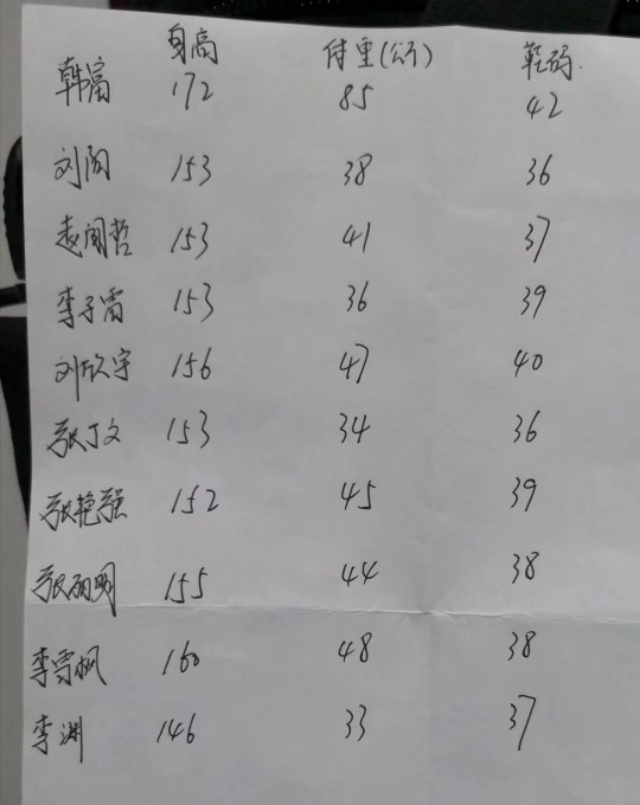 身高 体重(公斤) 鞋码
韩富 172 85 42
刘阳 153 38 36
袁闻哲 153 41 37
李子雷 153 36 39
刘欣宇 156 47 40
张丁文 153 34 36
张艳强 152 45 39
张丽明 155 44 38
李雪枫 160 48 38
李渊 146 33 37